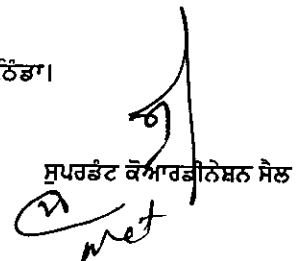 ਠਿੰਡਾ।
ਸੁਪਰਡੰਟ ਕੋਆਰਡੀਨੇਸ਼ਨ ਸੈਲ